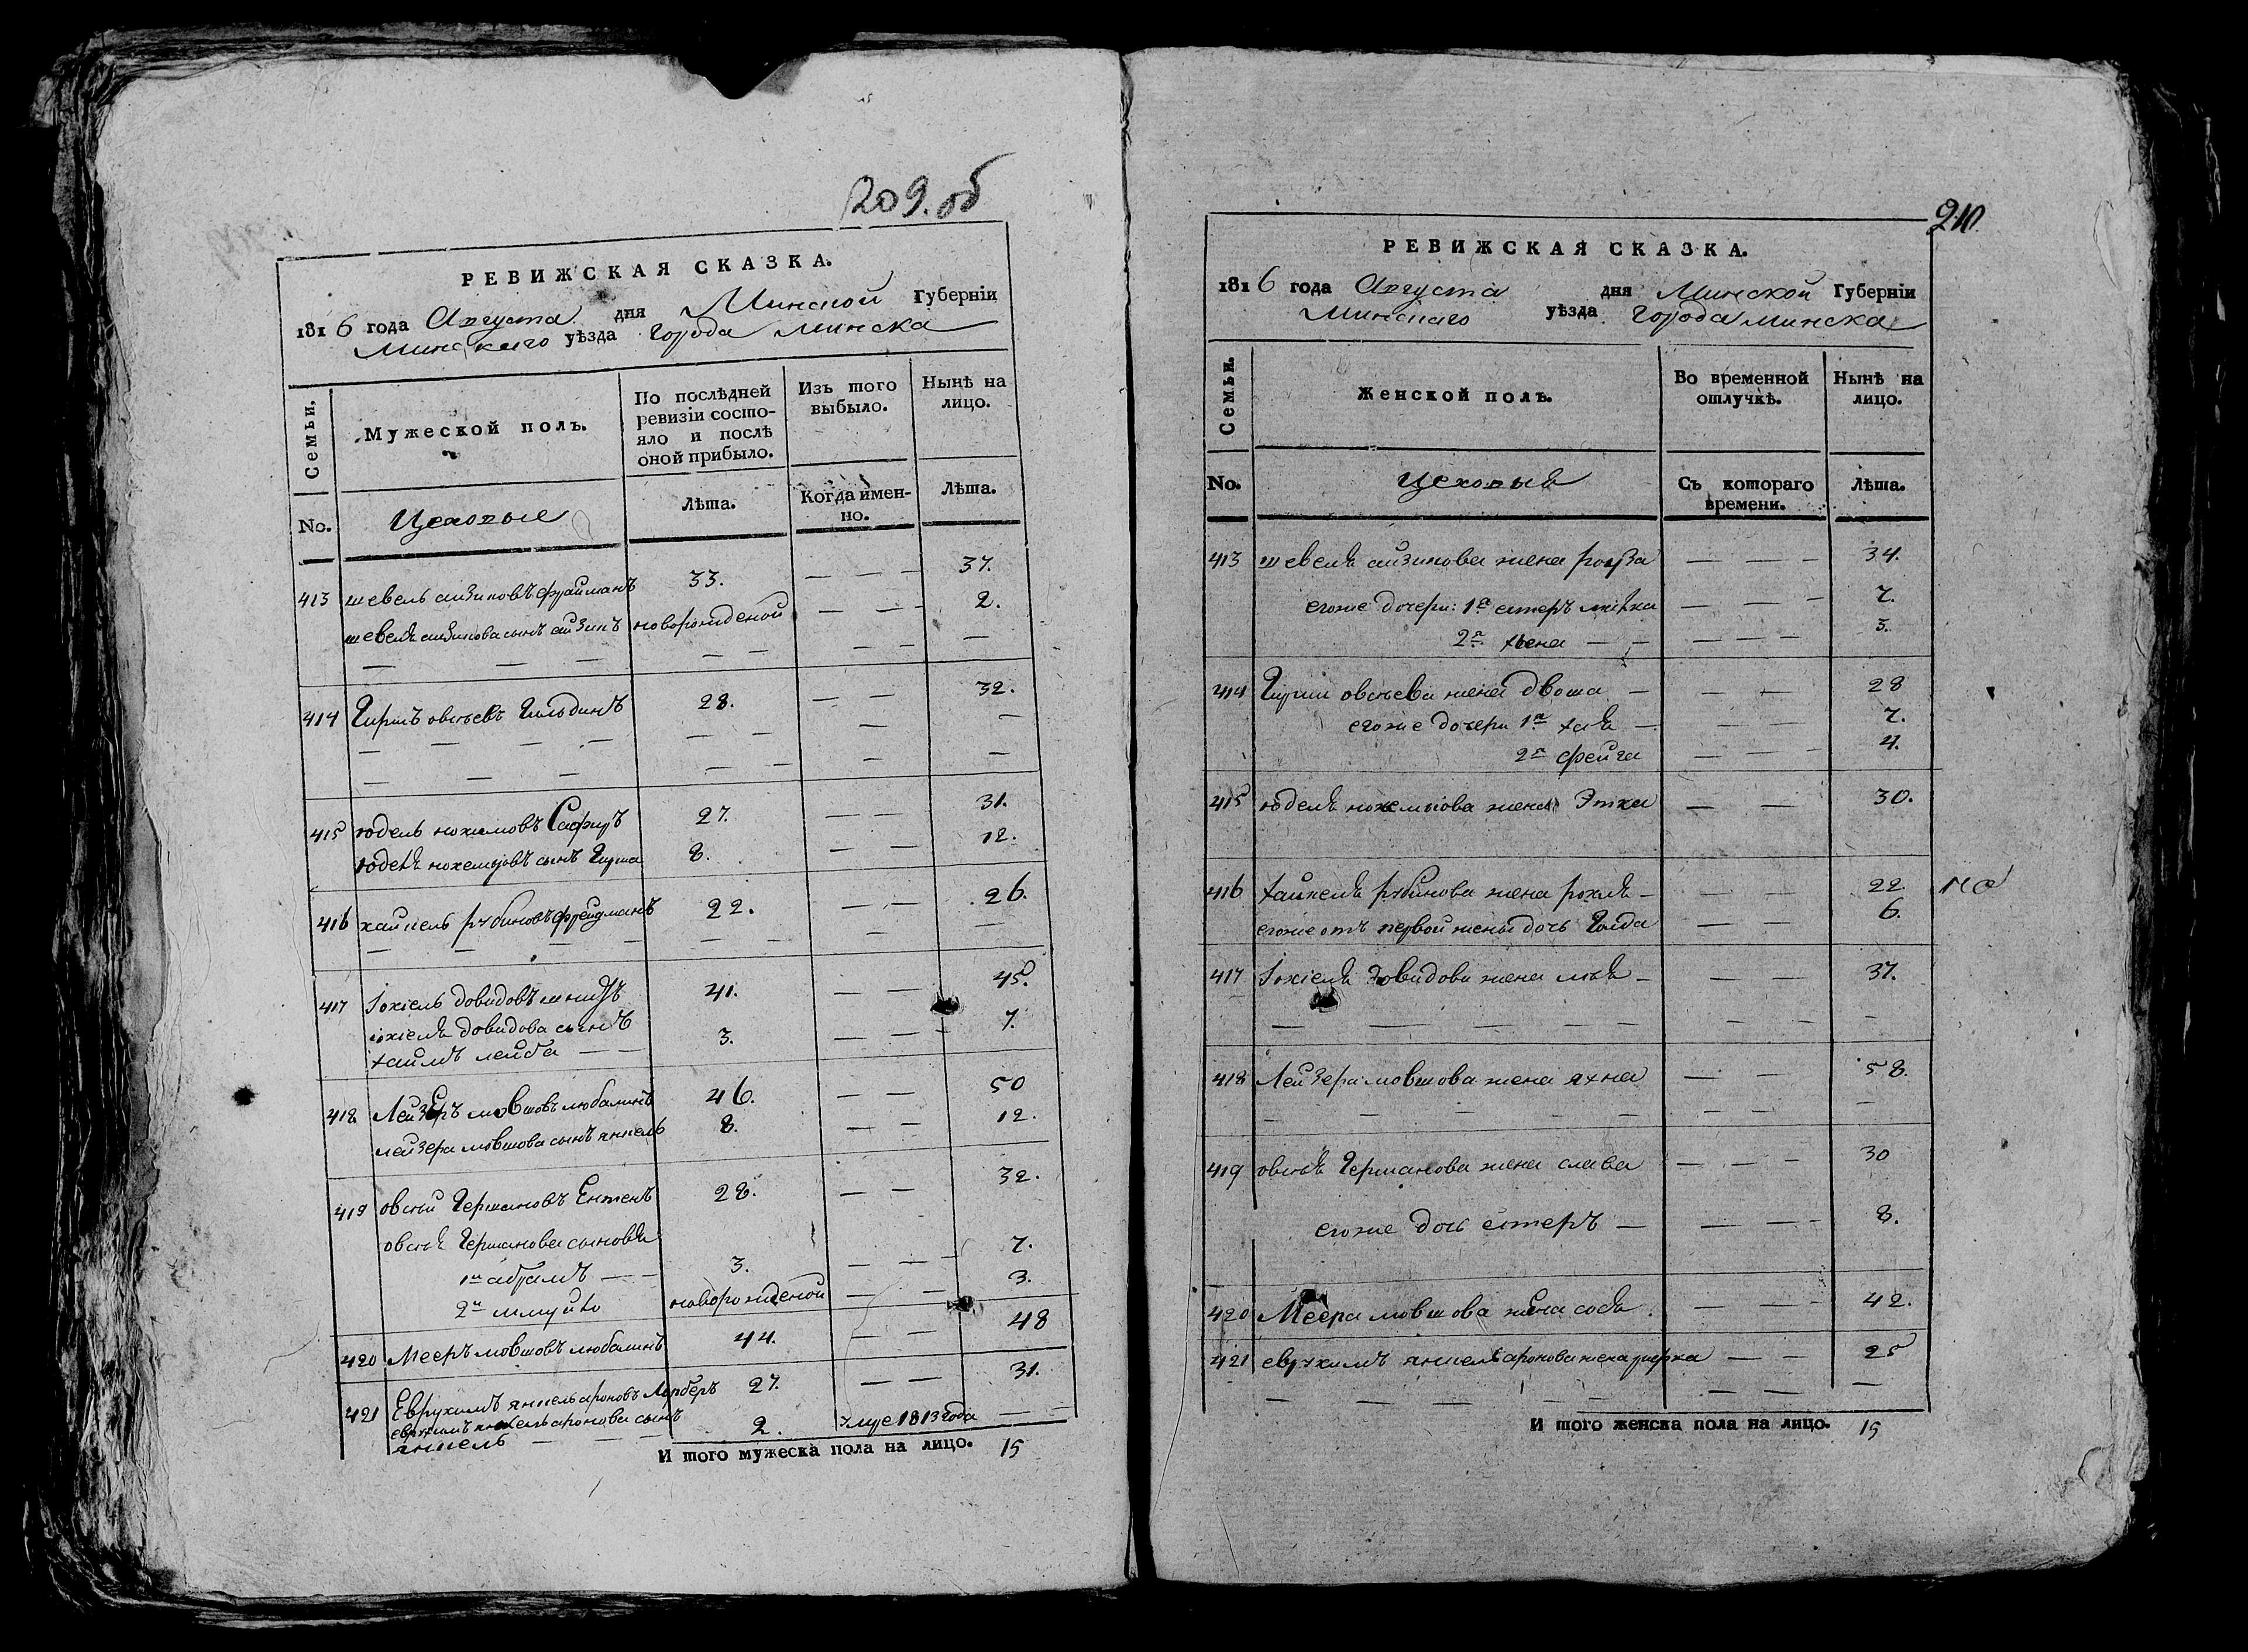 209. об
РЕВИЖСКАЯ СКАЗКА.
1816 года Августа дня Минской Губерніи
Минскаго уѣзда Города Минска
Семьи.
Мужеской полъ.
По послѣдней ревизіи состо-
яло и послѣ оной прибыло.
Изъ того выбыло.
Нынѣ на лицо.
No.
Цеховые
Лѣта.
Когда имен-
но.
Лѣта.
413 шевель айзиковъ фрайманъ 33. — — — 37.
шевеля айзикова сынъ айзикъ новорожденой — — — 2.
— — — — — — — —
414 Гиршъ овсѣевъ Гильдинъ 28. — — 32.
— — — — — — — —
— — — — — — —
415 юдель нохимовъ Сафиръ 27. — — 31.
сынъ Гирша 8. — — 12.
416 хайкель рубиновъ фрейдманъ 22. — — 26.
— — — — — — — —
417 Іохіель довидовъ 41. — — 45.
іохіеля довидова сынъ
хаимъ лейба — — 3. — — 7.
418 Лейзеръ мовшовъ любалинъ 46. — — 50
лейзера мовшова сынъ янкель 8. — — 12.
419 овсѣй Германовъ 28. — — 32.
овсѣя Германова сыновья
1й абрамъ — — 3. — — 7.
2й новорожденой — — 3.
420 Мееръ мовшовъ любалинъ 44. — — 48
421 Еврухимъ янкель ароновъ 27. — — 31.
еврухимъ янкель аронова сынъ
янкель — — — 2. умре 1813 года — —
И того мужеска пола на лицо. 15
210
РЕВИЖСКАЯ СКАЗКА.
1816 года Августа дня Минской Губерніи
Минскаго уѣзда Города Минска
Семьи.
Женской полъ.
Во временной отлучкѣ.
Нынѣ на лицо.
No.
Цеховыя
Съ котораго времени.
Лѣта.
413 шевеля айзикова жена — — — 34.
егоже дочери: 1я естеръ — — — 7.
2я хьена — — — — — 3.
414 Гирши овсѣева жена двоша — — — 28
егоже дочери 1я хая — — — 7.
2я фейга — — — 4.
415 юделя жена Этка — — 30.
416 хайкеля рубинова жена рохля — — — 22.
егоже отъ первой жены дочь Голда — — 6.
417 Іохіеля Довидова жена — — — 37.
— — — — — — — — —
418 Лейзера мовшова жена яхна — — 58.
— — — — — — — — —
419 овсѣя Германова жена слава — — — 30
егоже дочь естеръ — — — — 8.
420 Меера мовшова жена собя — — — 42.
421 еврухимъ янкеля аронова жена — — 25
— — — — — — — — —
И того женска пола на лицо. 15